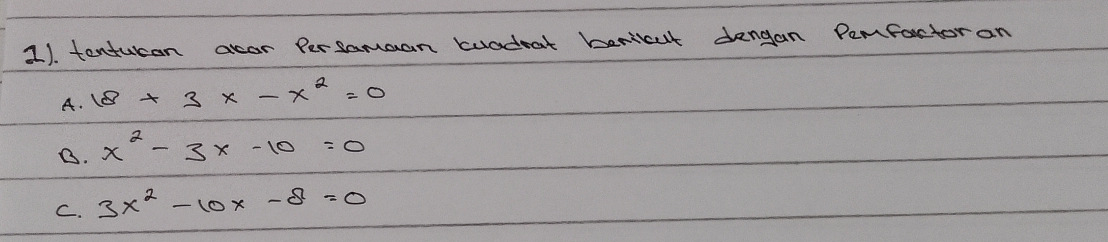 2). tentukan akar Persamaan kuadrat berikut dengan Pemfactoran
A. 18 + 3x - x² = 0
B. x² - 3x - 10 = 0
C. 3x² - 10x - 8 = 0